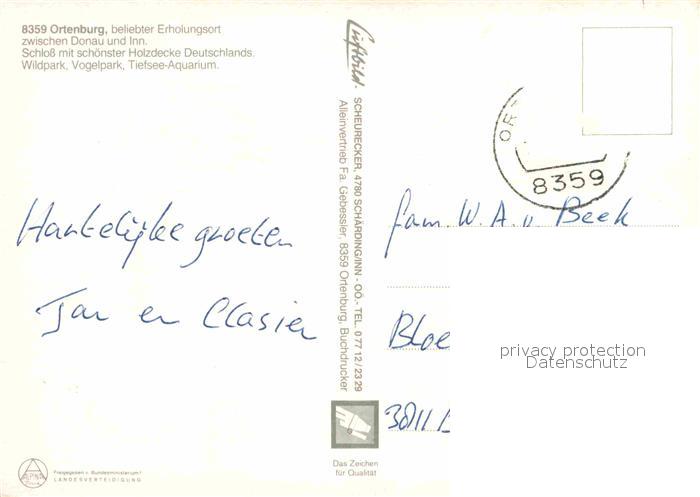 8359 Ortenburg, beliebter Erholungsort
zwischen Donau und Inn.
Schloß mit schönster Holzdecke Deutschlands.
Wildpark, Vogelpark, Tiefsee-Aquarium.
Hartelijke groeten
Jan en
Luftbild
SCHEURECKER, 4780 SCHÄRDING/INN - OÖ.- TEL. 0 77 12 / 23 29
Alleinvertrieb Fa. Gebessler, 8359 Ortenburg, Buchdrucker
Das Zeichen
für Qualität
ORT
8359
fam. W. A. v Beek
Bloe
3811
privacy protection
Datenschutz
ALPINA
Freigegeben v. Bundesministerium f.
LANDESVERTEIDIGUNG